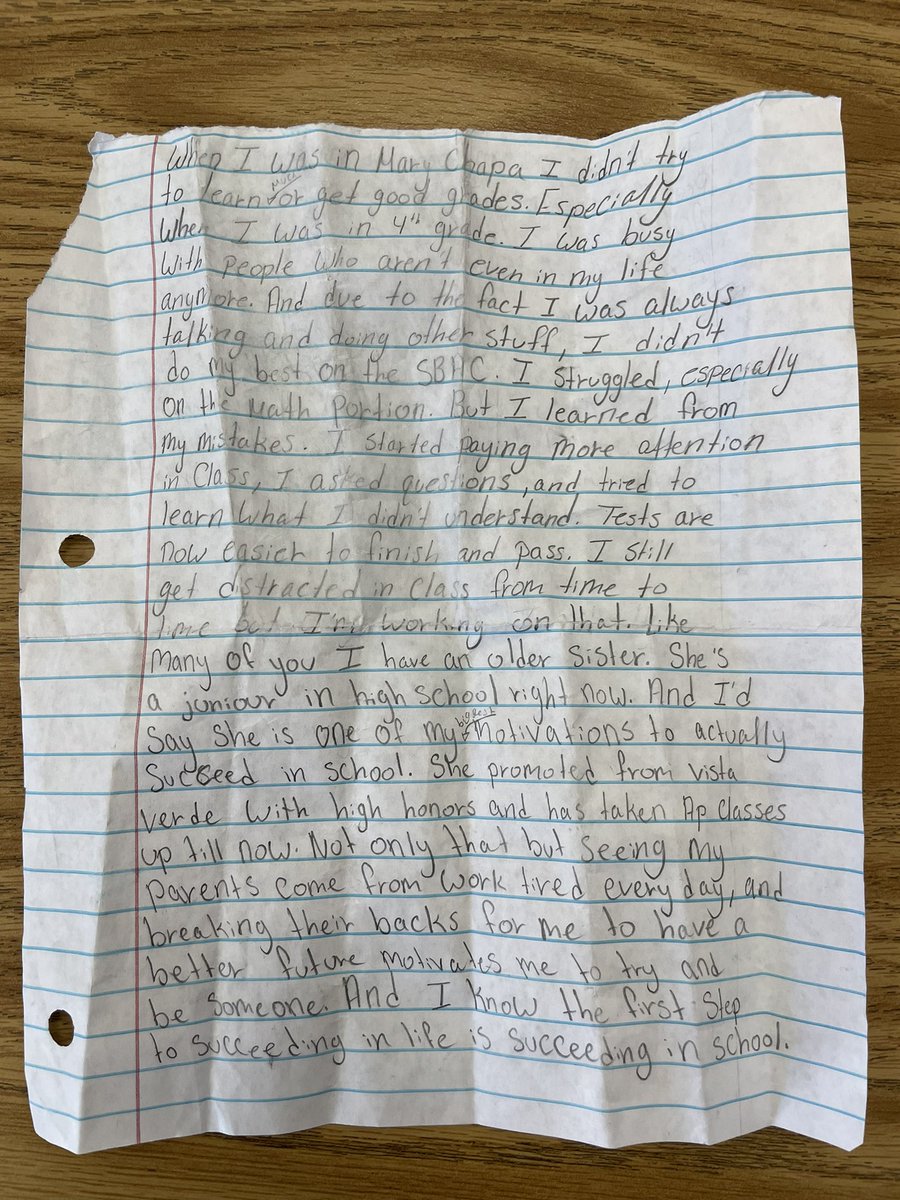 When I was in Mary Chapa I didn't try
to learn much or get good grades. Especially
When I was in 4th grade. I was busy
With people who aren't even in my life
anymore. And due to the fact I was always
talking and doing other stuff, I didn't
do my best on the SBAC. I struggled, especially
on the Math Portion. But I learned from
my mistakes. I started paying more attention
in Class, I asked questions, and tried to
learn what I didn't understand. Tests are
now easier to finish and pass. I still
get distracted in class from time to
time but I'm working on that. Like
Many of you I have an older sister. She's
a juniour in high school right now. And I'd
Say she is one of my biggest motivations to actually
Succeed in school. She promoted from vista
verde with high honors and has taken Ap classes
up till now. Not only that but seeing my
parents come from work tired every day, and
breaking their backs for me to have a
better future motivates me to try and
be someone. And I know the first step
to succeeding in life is succeeding in school.